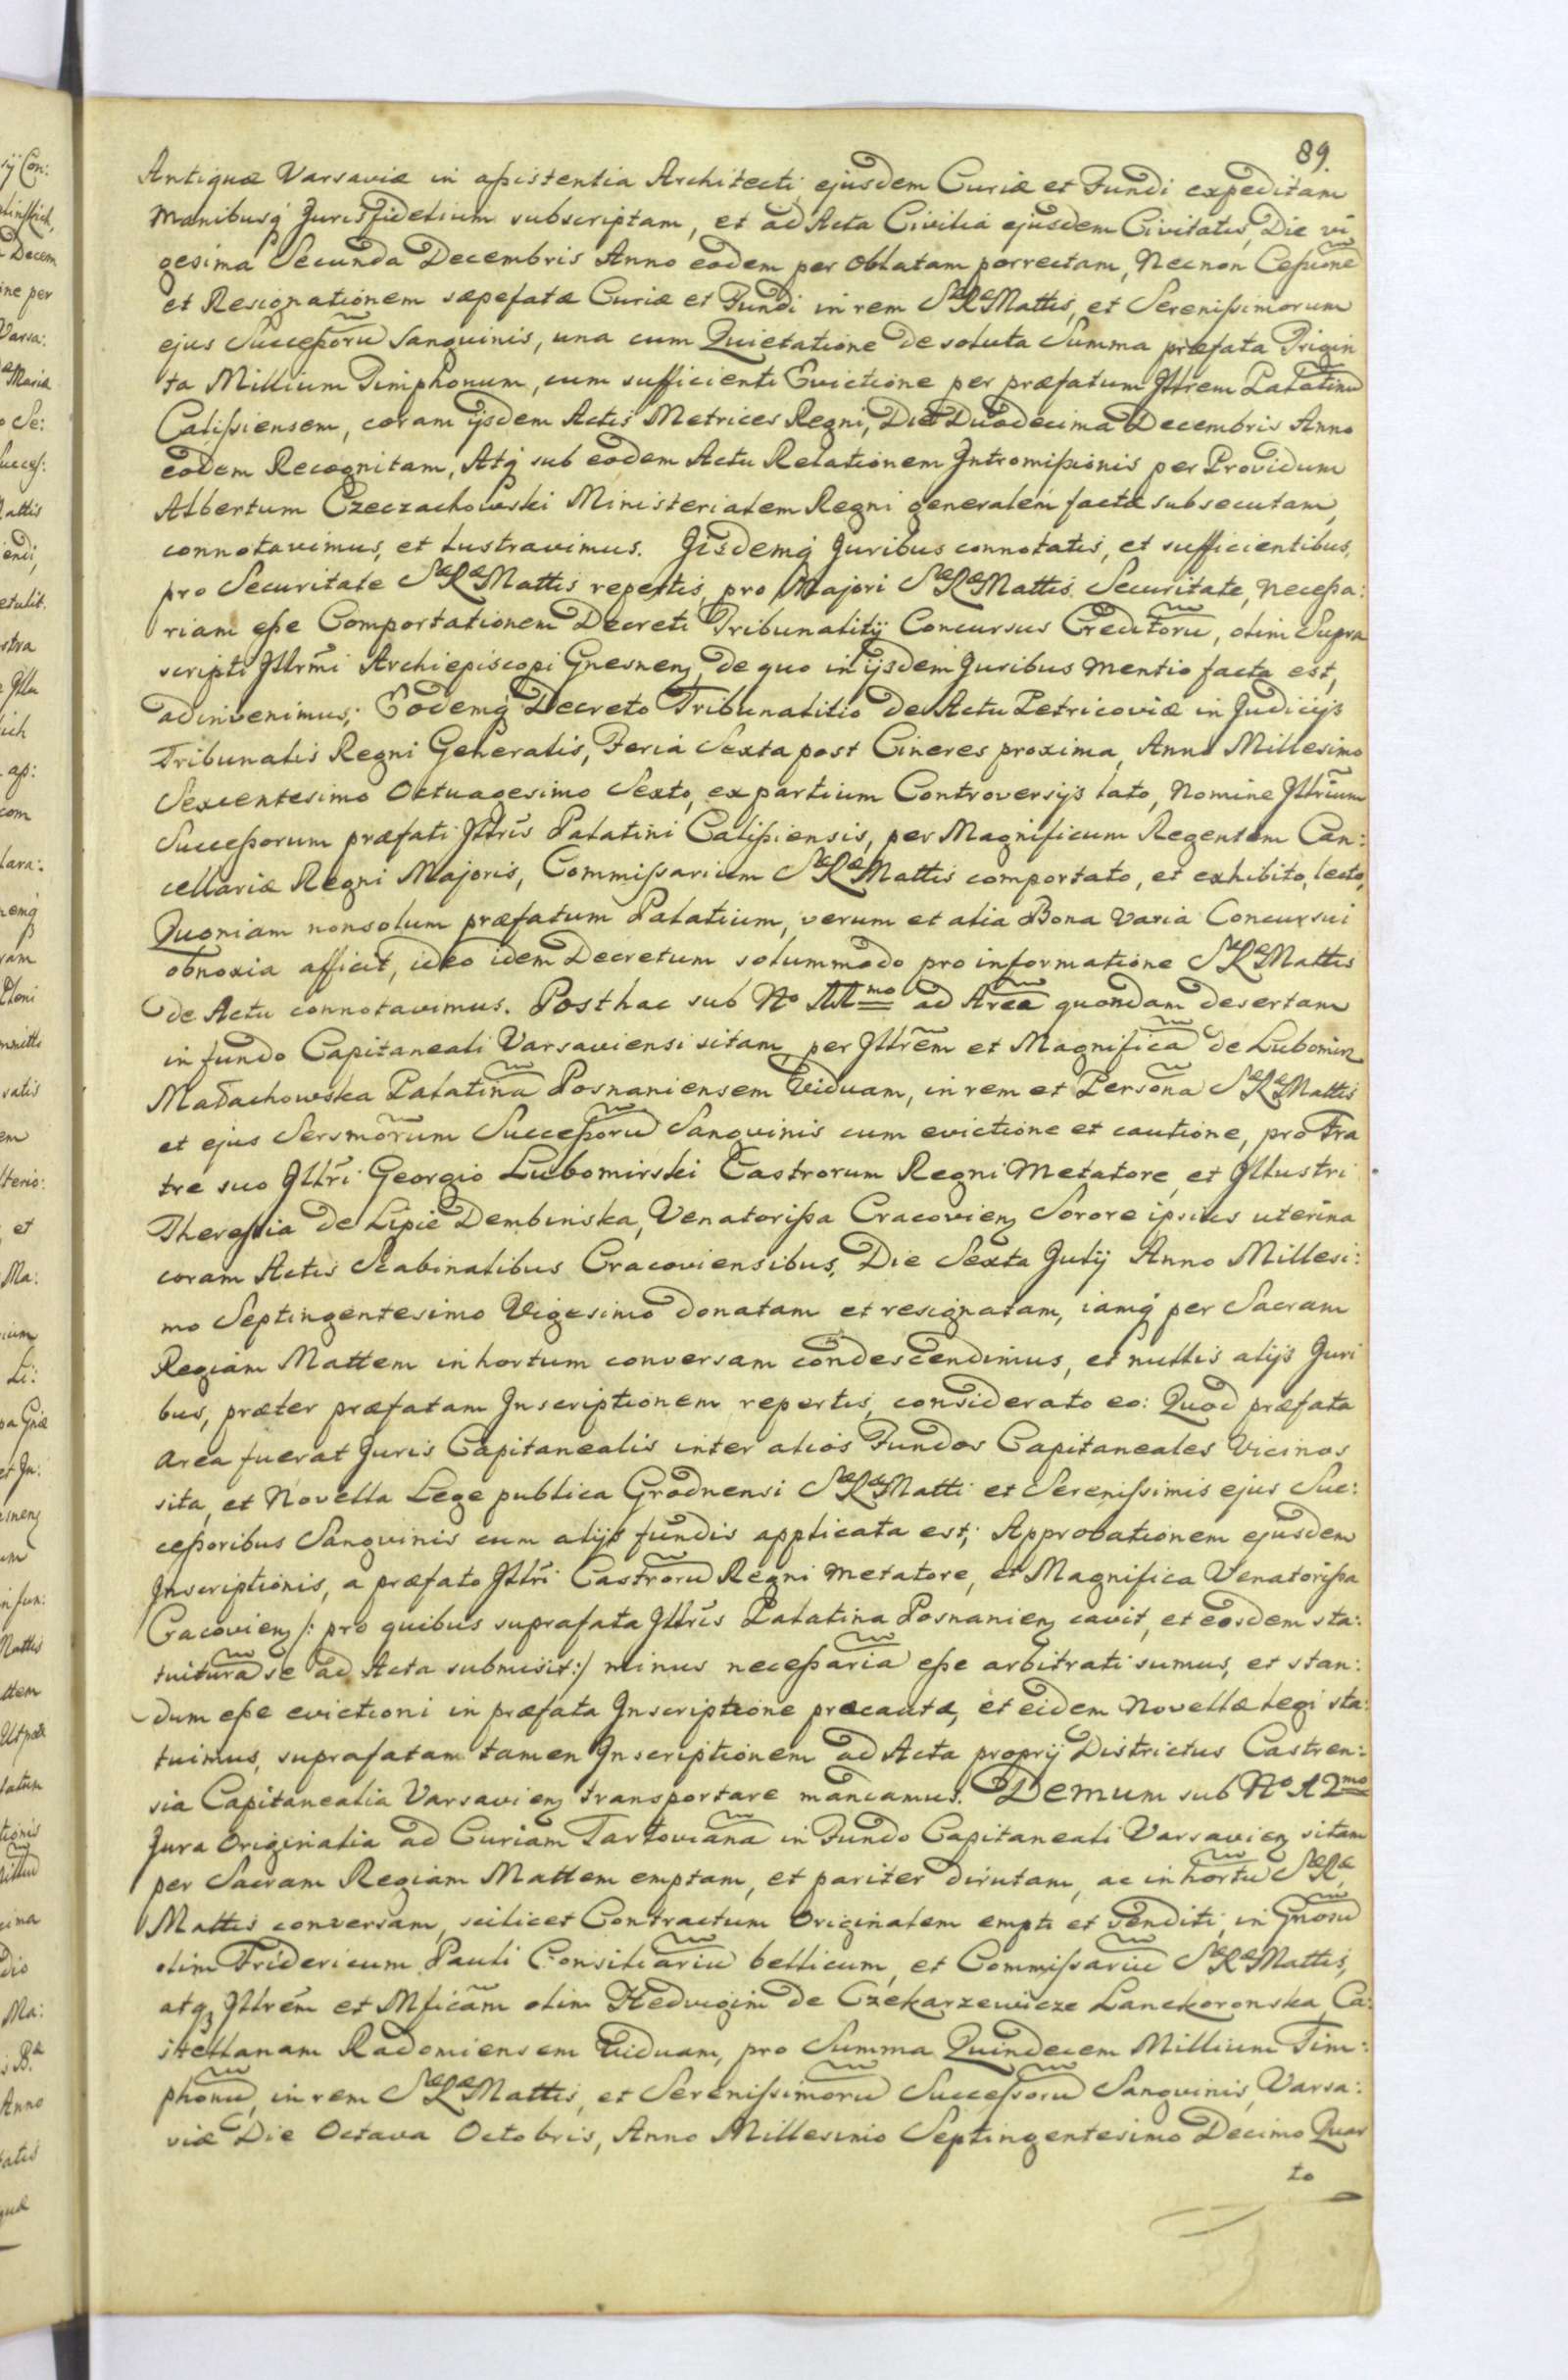 89.
Antiquæ Varsaviæ in aßistentia Architecti ejusdem Curiæ et Fundi expeditam
Manibusq́ Jurisfidelium subscriptam, et ad Acta Civilia ejusdem Civitatis, Die vi
gesima Secunda Decembris Anno eodem per oblatam porrectam, Necnon Ceßione
et Resignationem sæpefatæ Curiæ et Fundi in rem SæRæMattis, et Serenißimorum
ejus Succeßorū Sanguinis, una cum Quietatione de soluta Summa præfata Trigin
ta Millium Timphonum, cum sufficienti Evictione per præfatum Jllrem Palatinū
Calißiensem, coram ijsdem Actis Metrices Regni, Die Duodecima Decembris Anno
eodem Recognitam, Atq́ sub eodem Actu Relationem Jntromißionis per Providum
Albertum Czeczachowski Ministerialem Regni generalem factæ subsecutam,
connotavimus, et lustravimus. Jisdemq́ Juribus connotatis, et sufficientibus,
pro Securitate SæRæMattis repertis, pro Majori SæRæMattis Securitate, neceßa:
riam eße Comportationem Decreti Tribunalitij Concursus Creditorū, olim Supra
scripti Jllrmi Archiepiscopi Gnesnenz, de quo in ijsdem Juribus mentio facta est,
adinvenimus; Eodemq́ Decreto Tribunalitio de Actu Petricoviæ in Judicijs
Tribunalis Regni Generalis, Feria Sexta post Cineres proxima, Anno Millesimo
Sexcentesimo Octuagesimo Sexto, ex partium Controversijs lato, Nomine Jllrium
Succeßorum præfati Jllris Palatini Calißiensis, per Magnificum Regentem Can:
cellariæ Regni Majoris, Commißarium SæRæMattis comportato, et exhibito, lecto,
Quoniam nonsolum præfatum Palatium, verum et alia Bona varia Concursui
obnoxia afficit, ideo idem Decretum solummodo pro informatione SæRæMattis
de Actu connotavimus. Posthac sub No 11mo ad Area quondam desertam
in fundo Capitaneali Varsaviensi sitam, per Jllrem et Magnifica de Lubomirz
Małachowska Palatina Posnaniensem Viduam, in rem et Persona SæRæMattis
et ejus Sersmorum Succeßorū Sanguinis cum evictione et cautione, pro Fra
tre suo Jllri Georgio Lubomirski Castrorum Regni Metatore, et Jllustri
Theressia de Lipie Dembinska, Venatorißa Cracovienz Sorore ipsius uterina
coram Actis Scabinalibus Cracoviensibus, Die Sexta Julij Anno Millesi:
mo Septingentesimo Vigesimo donatam et resignatam, iamq́ per Sacram
Regiam Mattem in hortum conversam condescendimus, et nullis alijs Juri
bus, præter præfatam Jnscriptionem repertis, considerato eo: Quod præfata
area fuerat Juris Capitanealis inter alios Fundos Capitaneales Vicinos
sita, et Novella Lege publica Grodnensi SæRæMatti et Serenißimis ejus Suc:
ceßoribus Sanguinis cum alijs fundis applicata est; Approbationem ejusdem
Jnscriptionis, a præfato Jllri Castrorū Regni Metatore, et Magnifica Venatorißa
Cracovienz /: pro quibus suprafata Jllris Palatina Posnanienz cavit, et eosdem sta:
tuitura se ad Acta submisit :/ minus neceßaria eße arbitrati sumus, et stan:
dum eße evictioni in præfata Jnscriptione præcautæ, et eidem Novellæ Legi sta:
tuimus, suprafatam tamen Jnscriptionem ad Acta proprij Districtus Castren:
sia Capitanealia Varsavienz transportare mandamus. Demum sub No 12mo
Jura Originalia ad Curiam Tarłoviana in Fundo Capitaneali Varsavienz sitam
per Sacram Regiam Mattem emptam, et pariter dirutam, ac in hortū SæRæ
Mattis conversam, scilicet Contractum Originalem empti et venditi, in Gnosū
olim Fridericum Pauli Consiliariū bellicum, et Commißariū SæRæMattis,
atqz Jllrem et Mficam olim Hedvigim de Czekarzewicze Lanckoronska Ca:
stellanam Radomiensem Viduam, pro Summa Quindecem Millium Tim:
phonū, in rem SæRæMattis, et Serenißimorū Succeßorū Sanguinis, Varsa:
viæ Die Octava Octobris, Anno Millesimo Septingentesimo Decimo Quar
to